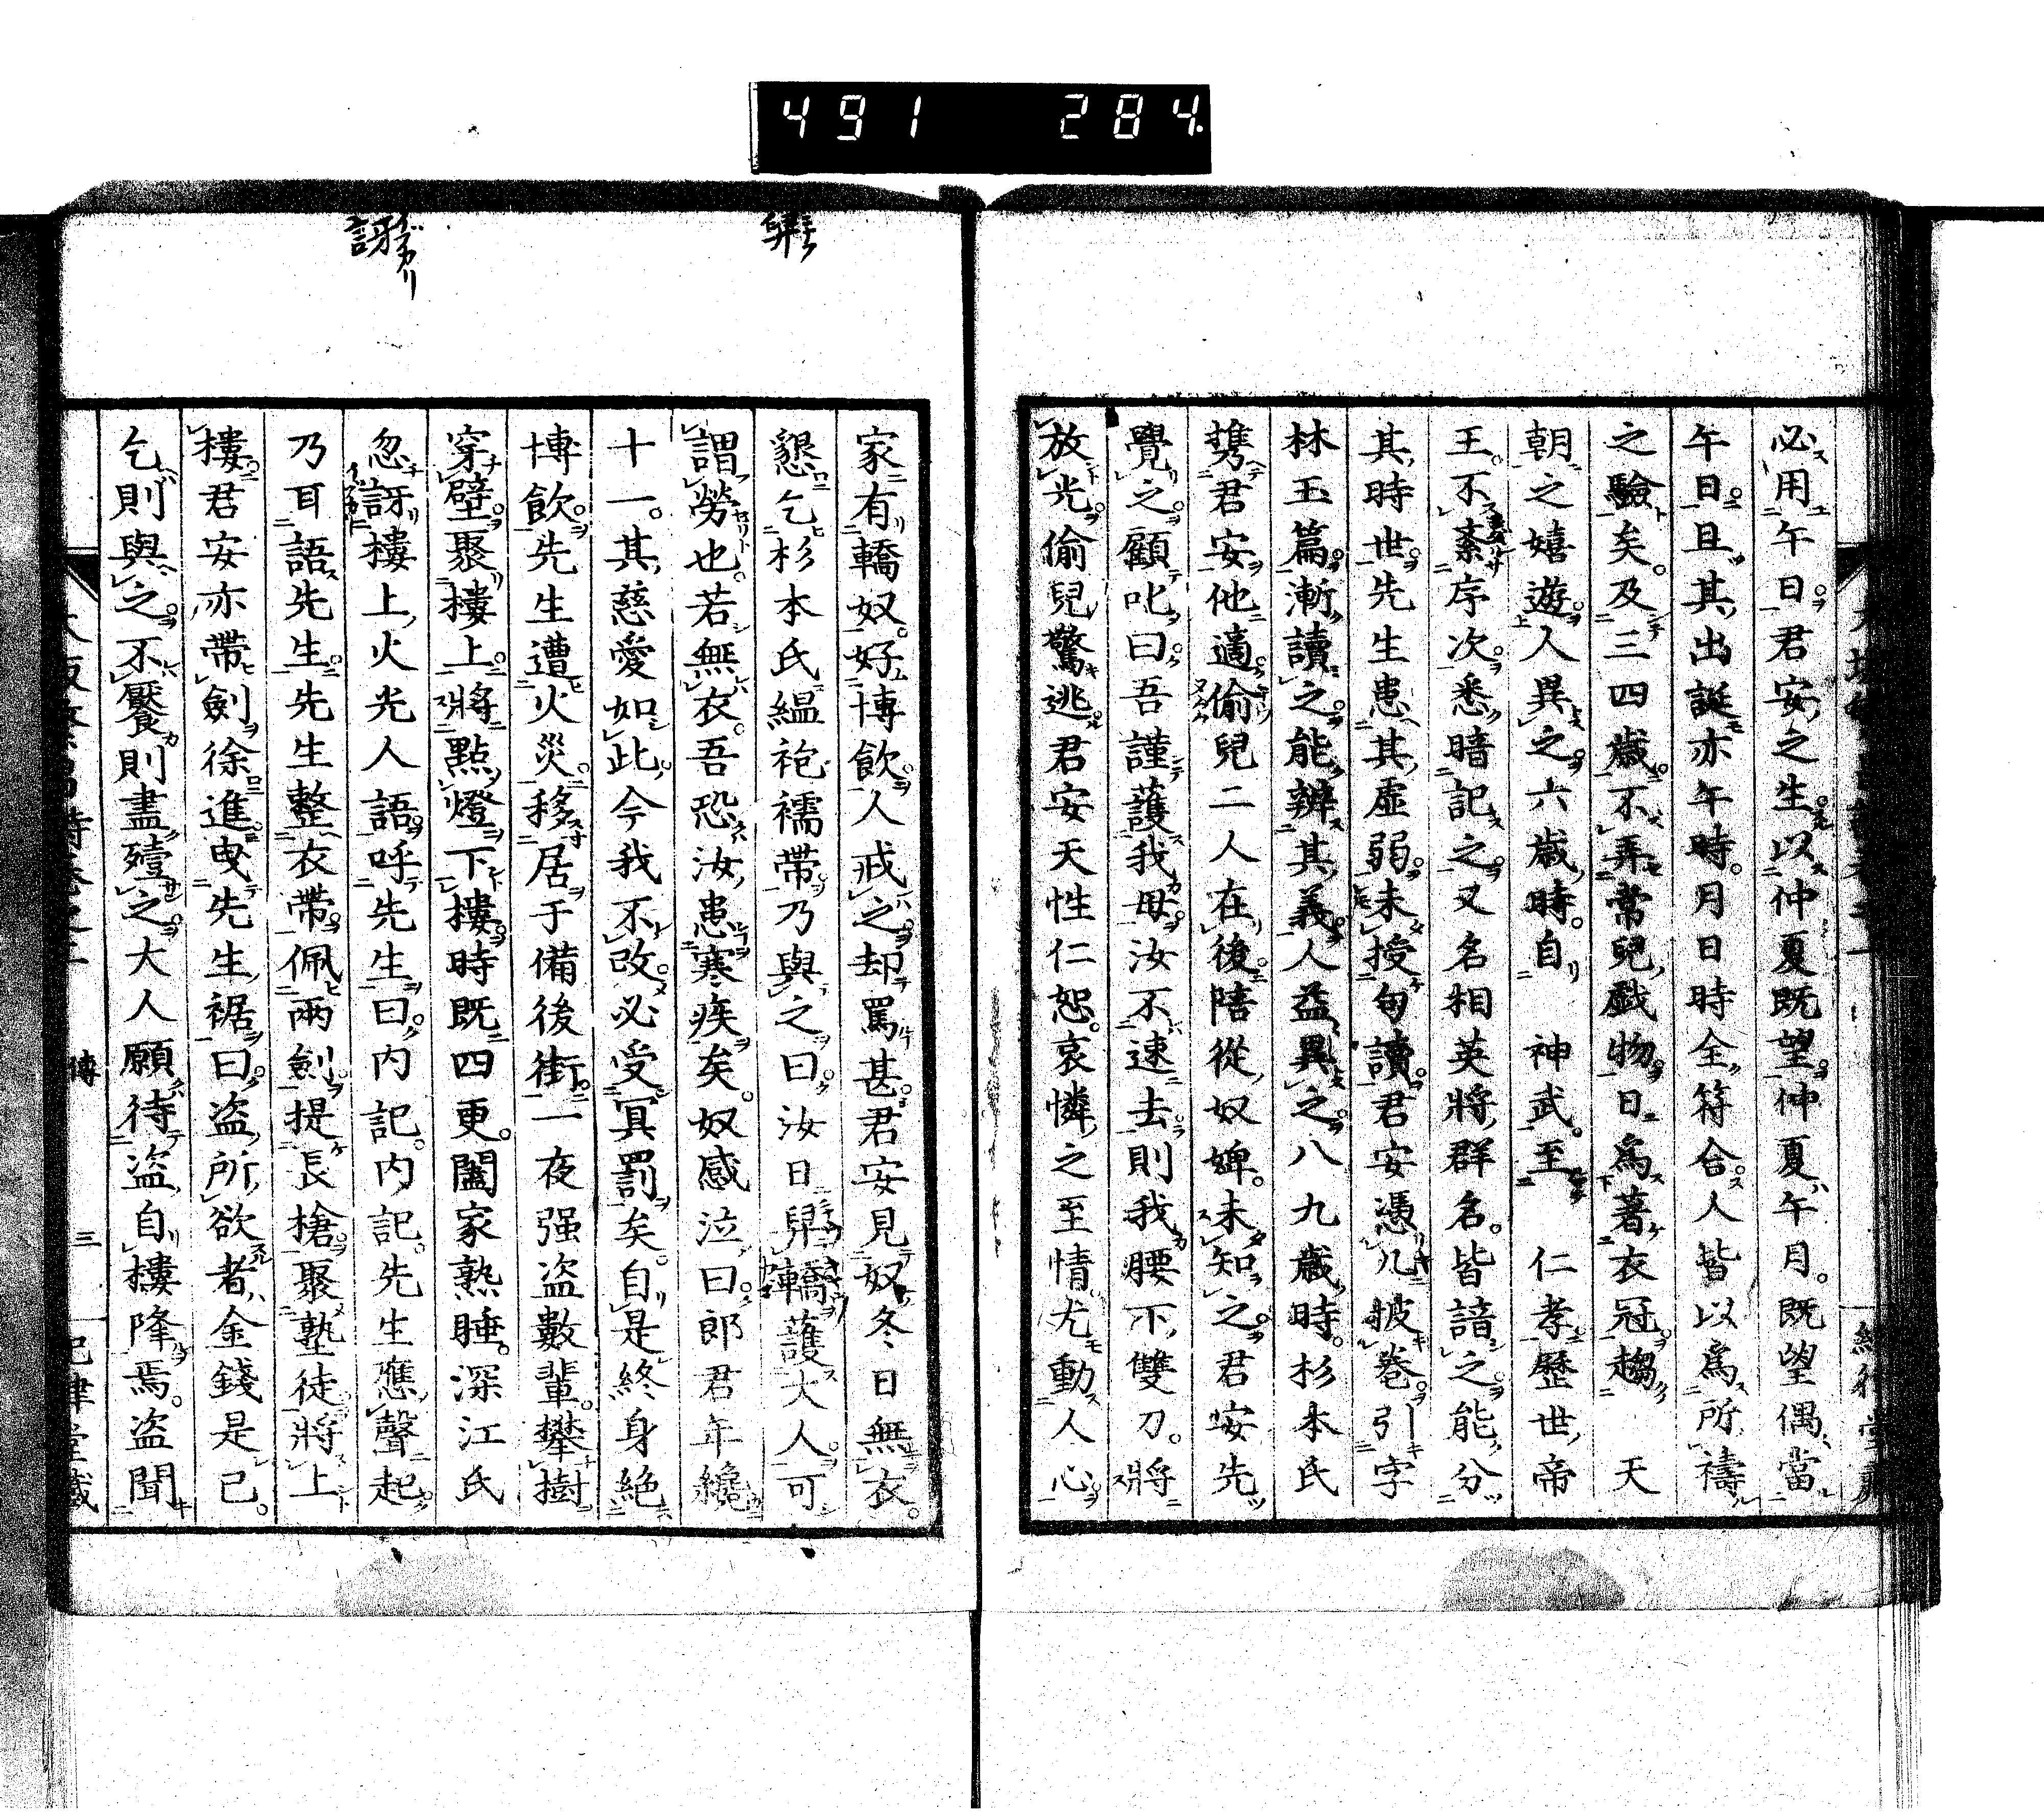 491 284
必用午日君安之生以仲夏既望仲夏午月既望偶當
午日且其出誕亦午時月日時全符合人皆以為所禱
之驗矣及三四歲不弄常兒戲物日為著衣冠趨 天
朝之嬉遊人異之六歲時自 神武至 仁孝歷世帝
王不紊序次悉暗記之又名相英將群名皆諳之能分
其時世先生患其虛弱未授句讀君安憑几披卷引字
林玉篇漸讀之能辨其義人益異之八九歲時杉本氏
携君安他適偷兒二人在後陪從奴婢未知之君安先
覺之顧叱曰吾謹護我母汝不速去則我腰下雙刀將
放光偷兒驚逃君安天性仁恕哀憐之至情尤動人心
舁
訝
家有轎奴好博飲人戒之却罵甚君安見奴冬日無衣
懇乞杉本氏縕袍襦帶乃與之曰汝日舁轎護大人可
謂勞也若無衣吾恐汝患寒疾矣奴感泣曰郎君年纔
十一其慈愛如此今我不改必受冥罰矣自是終身絕
博飲先生遭火災移居于備後街一夜强盜數輩攀樹
穿壁聚樓上將點燈下樓時既四更闔家熟睡深江氏
忽訝樓上火光人語呼先生曰內記內記先生應聲起
乃耳語先生先生整衣帶佩兩劍提長槍聚塾徒將上
樓君安亦帶劍徐進曳先生裾曰盜所欲者金錢是已
乞則與之不饜則盡殪之大人願待盜自樓降焉盜聞
傳
三